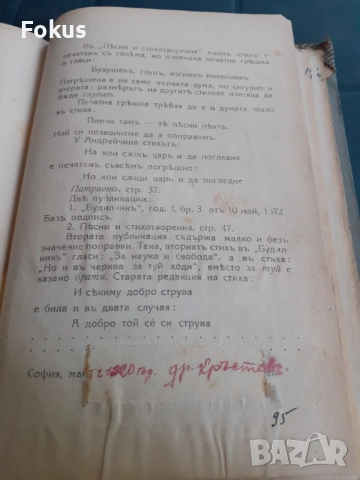 Fokus
Въ „Пѣсни и стихотворения“ единъ стихъ е
печатанъ съ голѣма, но очевидна печатна грѣшка
и гласи:
Будушенъ, глупъ, изгнилъ покойникъ.
Погрѣшена е не само първата дума, но сигурно и
втората: размѣрътъ на другитѣ стихове изисква да
бѫде глупавъ.
Печатна грѣшка трѣбва да е и думата
въ стиха:
Пиечи тамъ — тѣ пѣсни пѣятъ.
Ний си позволихме да я поправимъ.
У Андрейчина стихътъ:
На кои сѫщъ царь и да погледне
е печатанъ съвсѣмъ погрѣшно:
Но кои сѫщи царь и да погледне.
Патриотъ, стр. 37.
Двѣ публикации:
1. „Будилникъ“, год. I, бр. 3. отъ 10 май, 1872.
Безъ подпись.
2. Пѣсни и стихотворения, стр. 47.
Втората публикация съдържа малко и безъ
значение поправки. Така, вториятъ стихъ въ „Будил-
никъ“ гласи: „За наука и свобода“, а въ стиха:
„Но и въ черква за туй ходи“, вмѣсто за туй е
казано братя. Старата редакция на стиха:
И сѣкиму добро струва
е била и въ двата случая:
А добро той сé си струва
София, 1920 год. др. Кръстевъ
95
BAZAR.bg